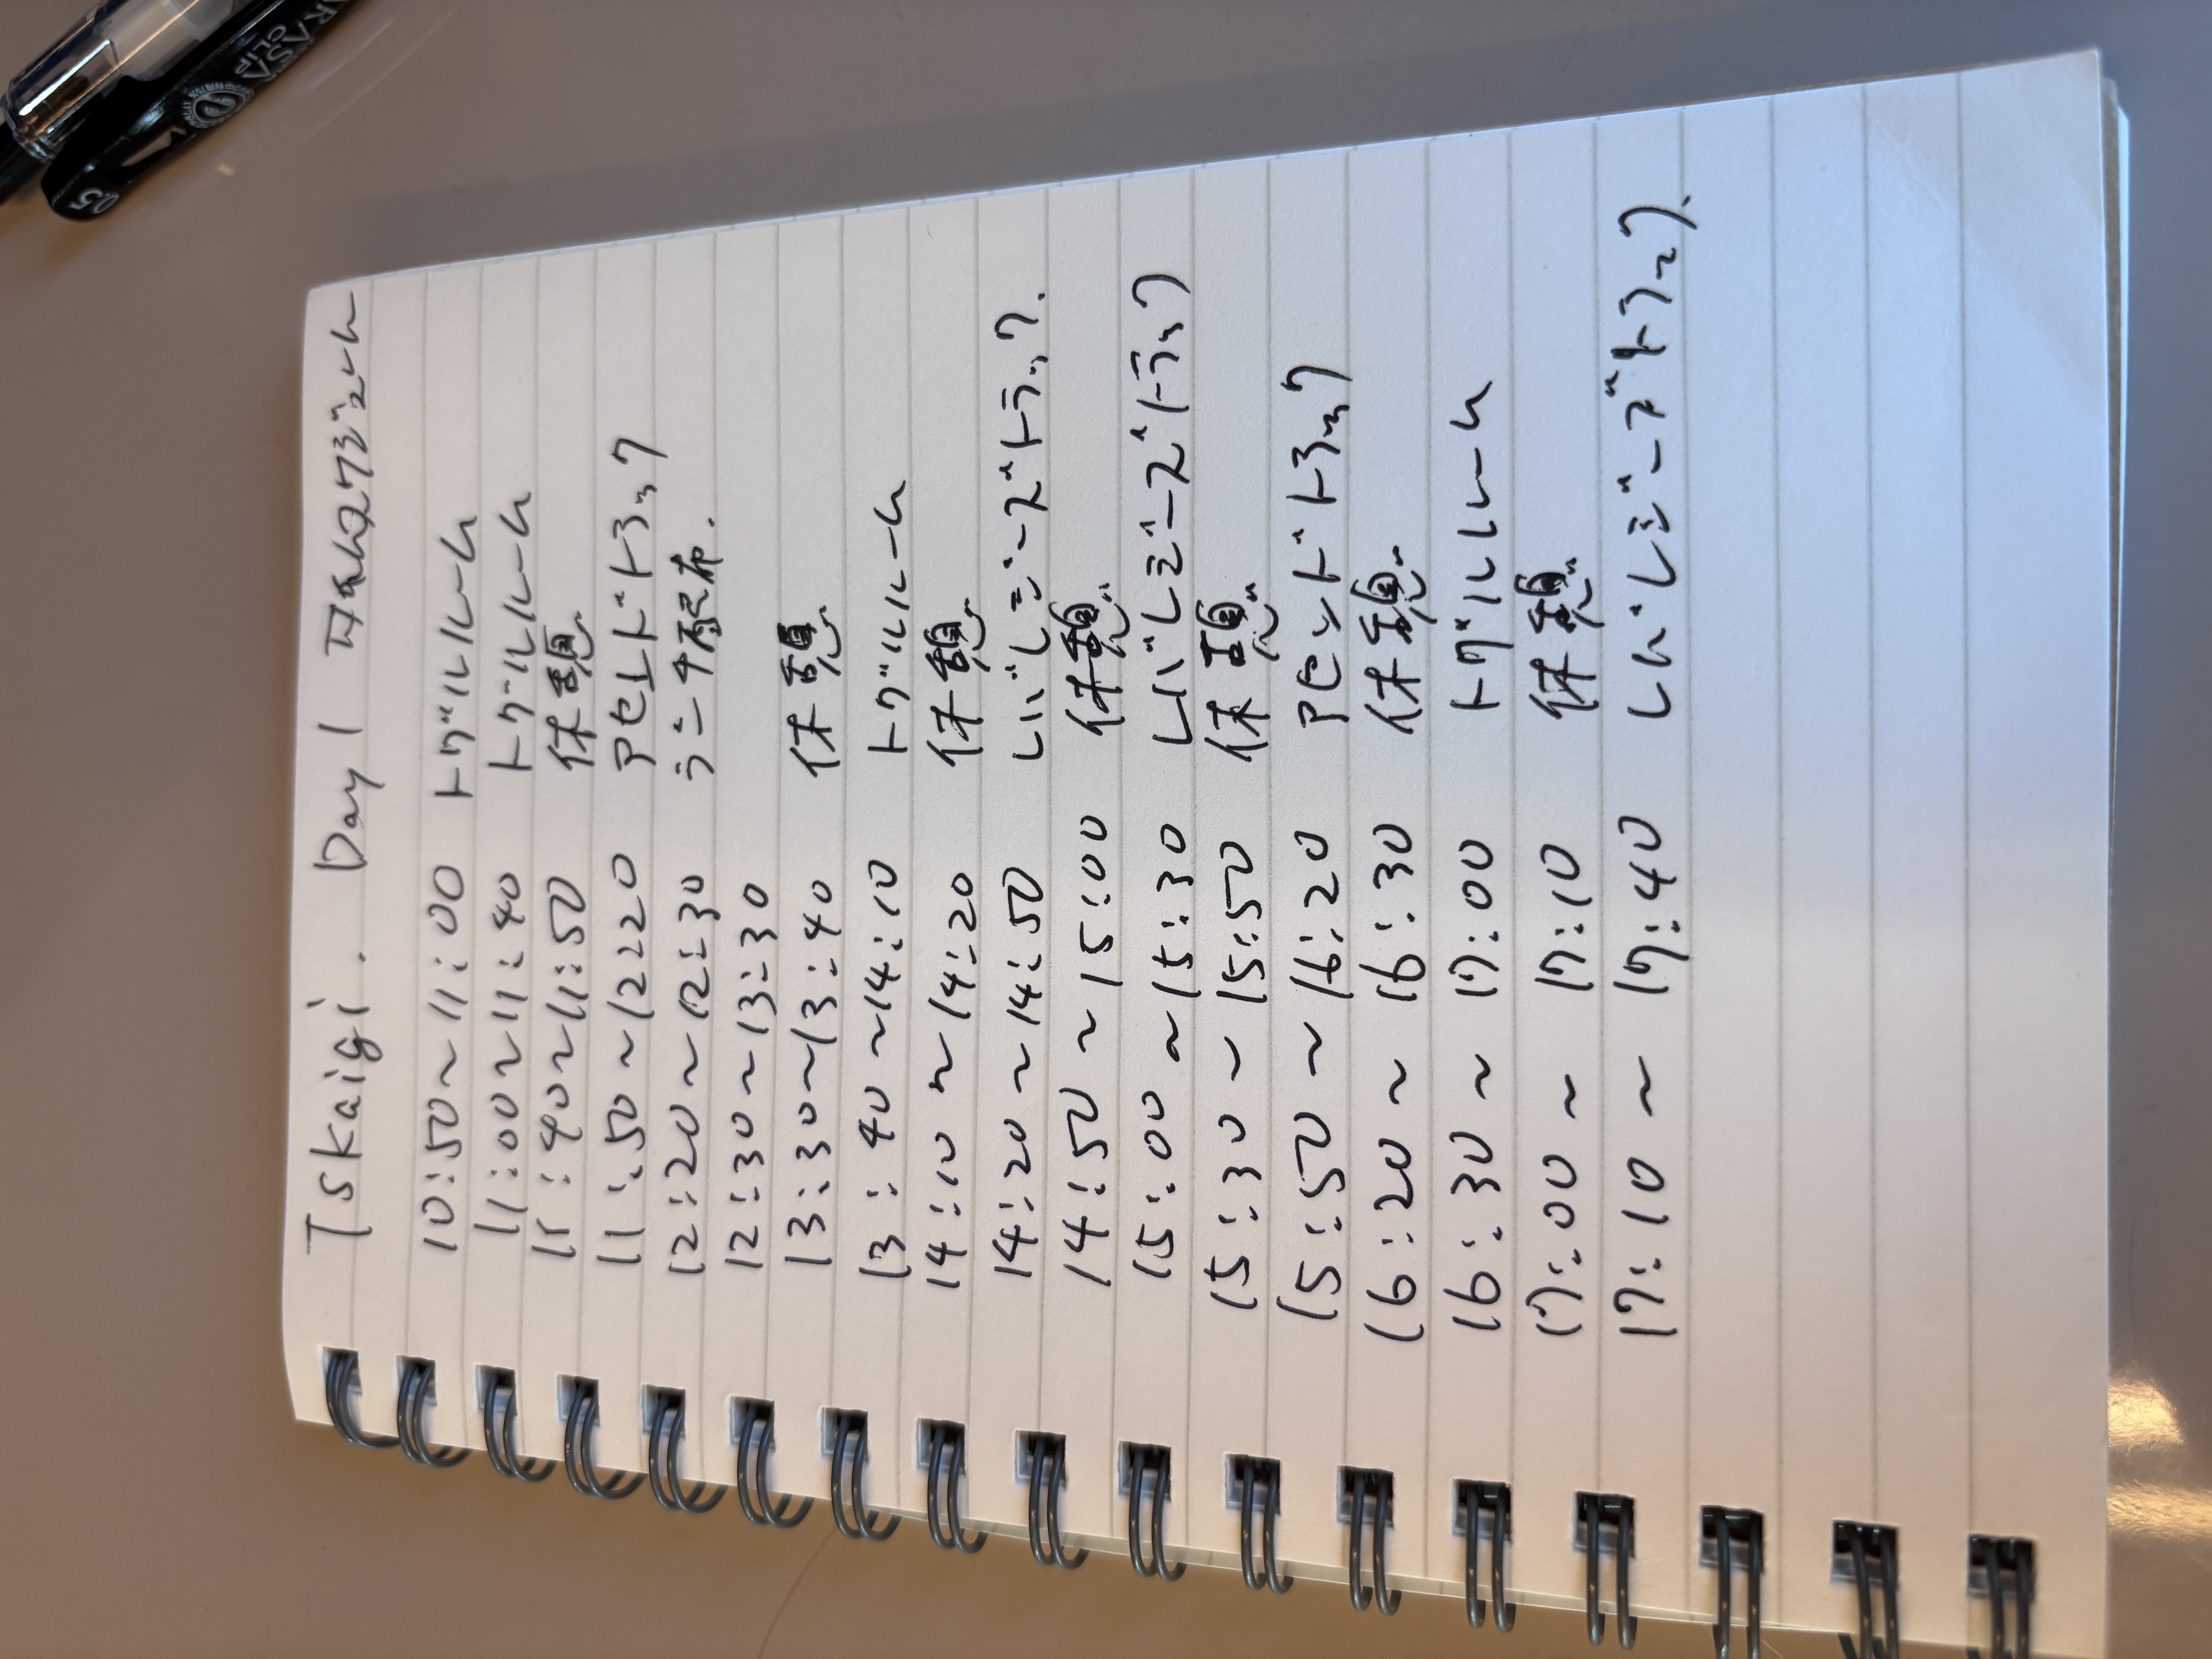 Tskaigi. Day1 タイムスケジュール
10:50～11:00 トグルルーム
11:00～11:40 トグルルーム
11:40～11:50 休憩
11:50～12:20 アセンドトラック
12:20～12:30 ランチ配布.
12:30～13:30
13:30～13:40 休憩
13:40～14:10 トグルルーム
14:10～14:20 休憩
14:20～14:50 レバレジーズトラック.
14:50～15:00 休憩
15:00～15:30 レバレジーズトラック
15:30～15:50 休憩
15:50～16:20 アセンドトラック
16:20～16:30 休憩
16:30～17:00 トグルルーム
17:00～17:10 休憩
17:10～17:40 レバレジーズトラック.
05
SARASA
CLIP